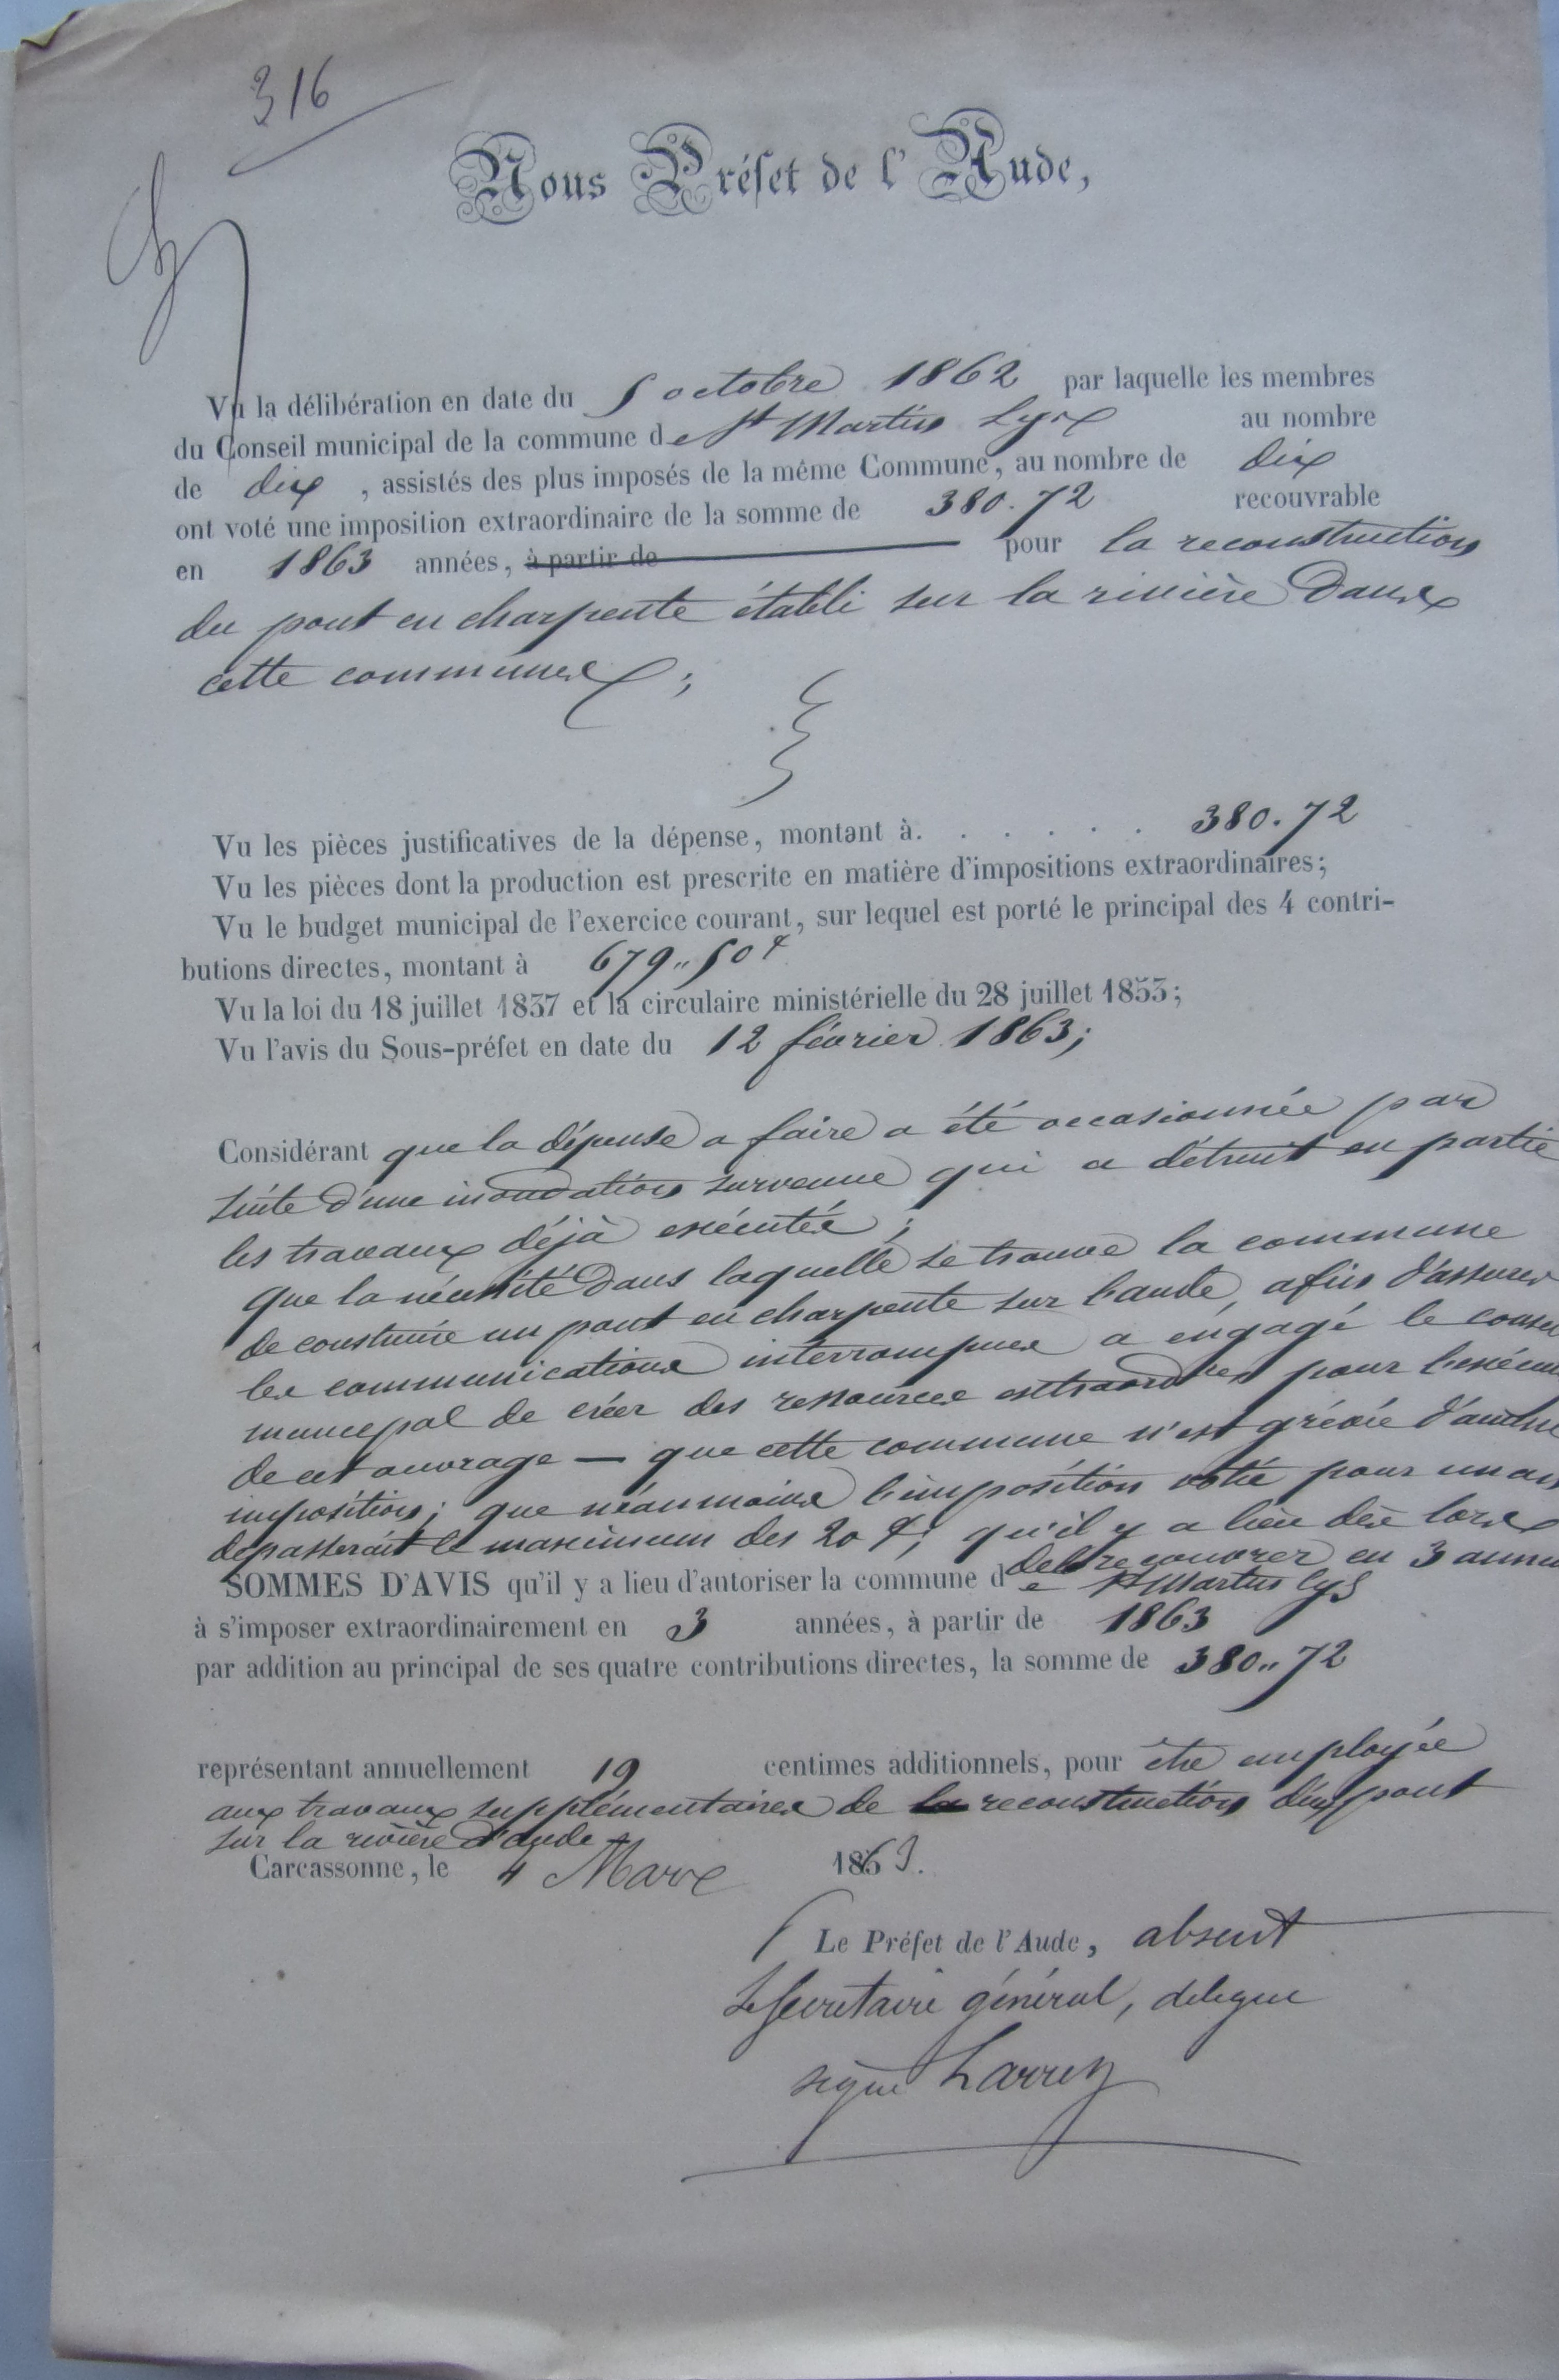 316
Nous Préfet de l'Aude,
Vu la délibération en date du 5 octobre 1862 par laquelle les membres
du Conseil municipal de la commune de St Martin Lys au nombre
de dix, assistés des plus imposés de la même Commune, au nombre de dix
ont voté une imposition extraordinaire de la somme de 380.72 recouvrable
en 1863 années, à partir de pour la reconstruction
du pont en charpente établi sur la rivière dans
cette commune ;
Vu les pièces justificatives de la dépense, montant à. . . . . . 380.72
Vu les pièces dont la production est prescrite en matière d'impositions extraordinaires;
Vu le budget municipal de l'exercice courant, sur lequel est porté le principal des 4 contri-
butions directes, montant à 679,,50
Vu la loi du 18 juillet 1837 et la circulaire ministérielle du 28 juillet 1853;
Vu l'avis du Sous-préfet en date du 12 février 1863;
Considérant que la dépense a faire a été occasionnée par
suite d'une inondation survenue qui a détruit en partie
les travaux déjà exécutés ;
que la nécessité dans laquelle se trouve la commune
de construire un pont en charpente sur l'aude, afin d'assurer
les communications interrompues a engagé le conseil
municipal de créer des ressources extraordres pour
de cet ouvrage — que cette commune n'est grévée d'autre
imposition; que néanmoins l'imposition votée pour un an
dépasserait le maximum des 20 ; qu'il y a lieu dès lors
de la recouvrer en 3 années
SOMMES D'AVIS qu'il y a lieu d'autoriser la commune de St Martin lys
à s'imposer extraordinairement en 3 années, à partir de 1863
par addition au principal de ses quatre contributions directes, la somme de 380,,72
représentant annuellement 19 centimes additionnels, pour être employée
aux travaux supplémentaires de la reconstruction d'un pont
sur la rivière d'aude
Carcassonne, le 4 Mars 1863.
Le Préfet de l'Aude, absent
Le Secrétaire général, délégué
signé